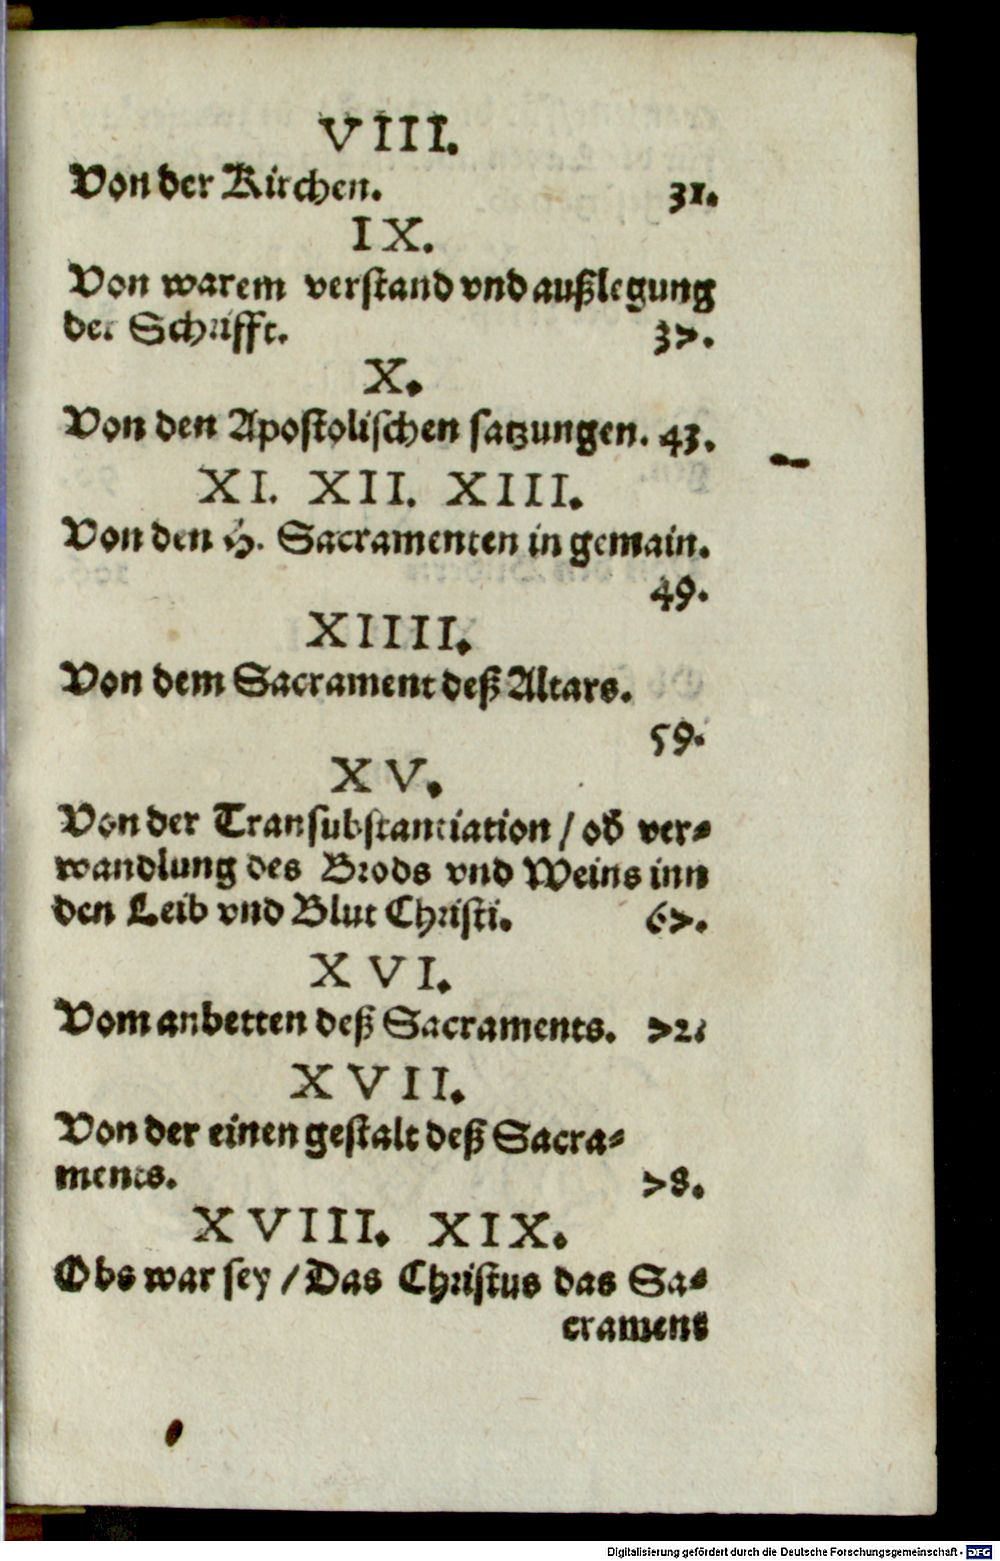 VIII.
Von der Kirchen. 31.
IX.
Von warem verstand vnd außlegung
der Schrifft. 37.
X.
Von den Apostolischen satzungen. 43.
XI. XII. XIII.
Von den H. Sacramenten in gemain.
49.
XIIII.
Von dem Sacrament deß Altars.
59.
XV.
Von der Transubstantiation / ob ver-
wandlung des Brods vnd Weins inn
den Leib vnd Blut Christi. 67.
XVI.
Vom anbetten deß Sacraments. 72.
XVII.
Von der einen gestalt deß Sacra-
ments. 78.
XVIII. XIX.
Obs war sey / Das Christus das Sa-
crament
Digitalisierung gefördert durch die Deutsche Forschungsgemeinschaft - DFG